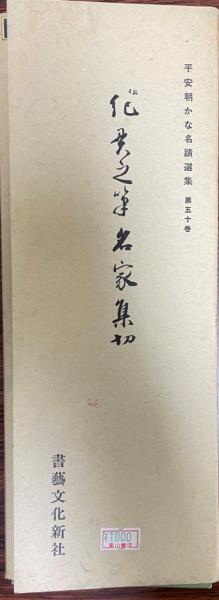 平安朝かな名蹟選集 第五十巻
伝 紀貫之筆名家集切
書藝文化新社
¥1000
高山書店